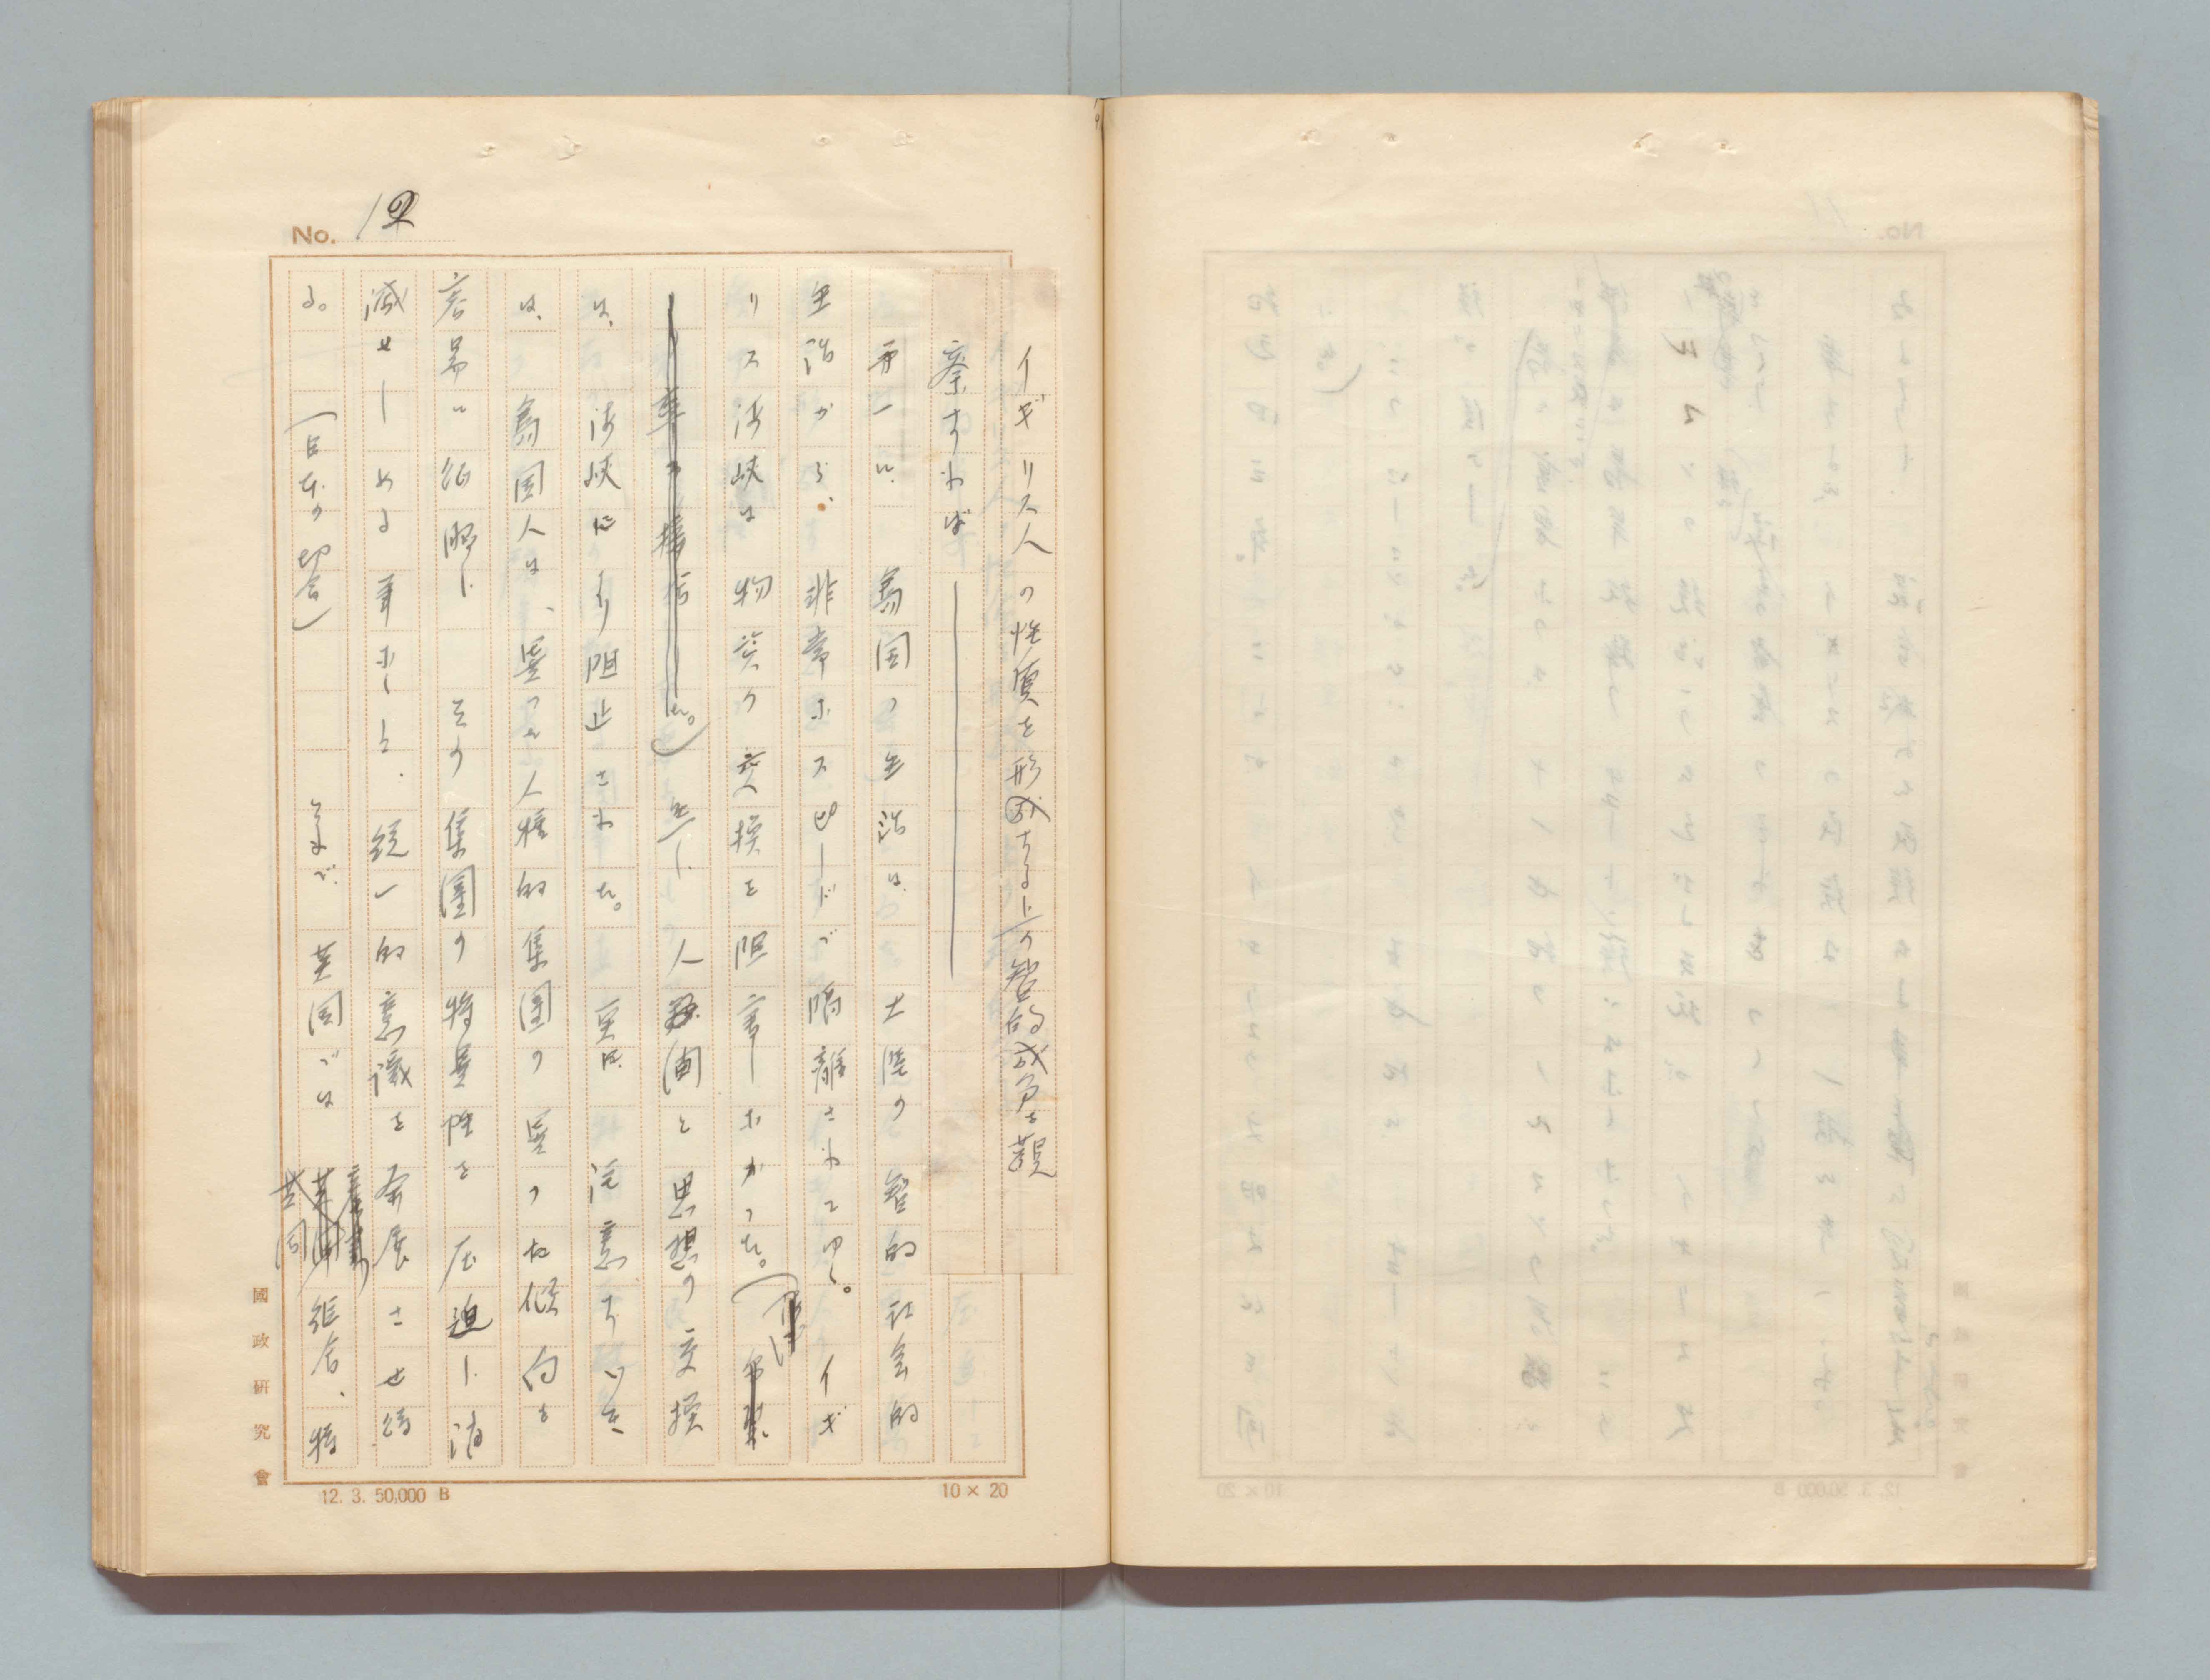 No. 12
イギリス人の性質を形成する上の智的成分を観
察すれば――
第一に、島国の生活は、大陸の智的社会的
生活から、非常なスピードで隔離されてゆく。イギ
リス海峡は物質の交換を阻害しなかった。
人間と思想の交換
は、海峡により阻止された。更に、注意すべき
は、島国人は、異つた人種的集団の異つた傾向を
容易に征服し、その集団の特異性を圧迫し、消
滅せしめる事なしに、統一的意識を発展させ得
る。(日本の場合)そこで、英国では英国組合、特
國政研究會
12. 3. 50,000 B
10×20